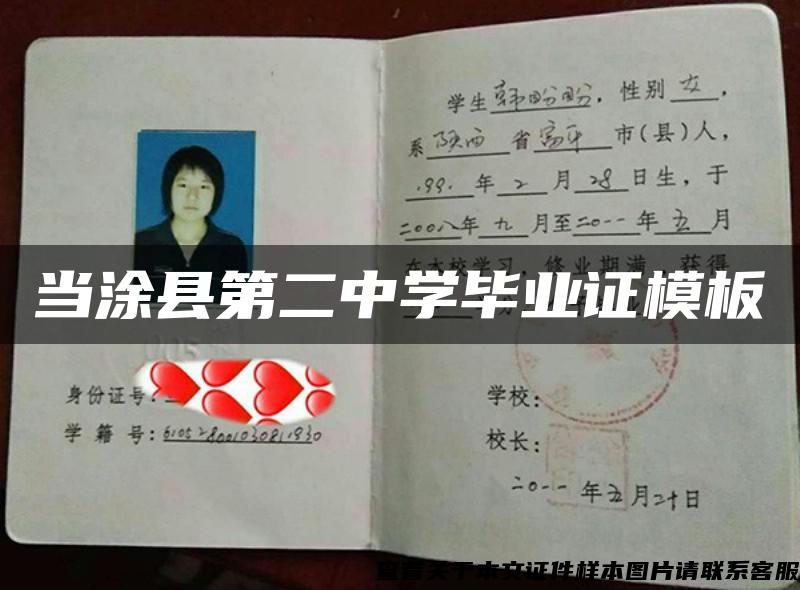 学生韩盼盼，性别女，
系陕西省富平市(县)人，
1991年2月28日生，于
二00八年九月至二0一一年五月
在本校学习，修业期满，获得
当涂县第二中学毕业证模板
身份证号：
学籍号：610528001030811930
学校：
校长：
二0一一年五月二十日
查看关于本文证件样本图片请联系客服